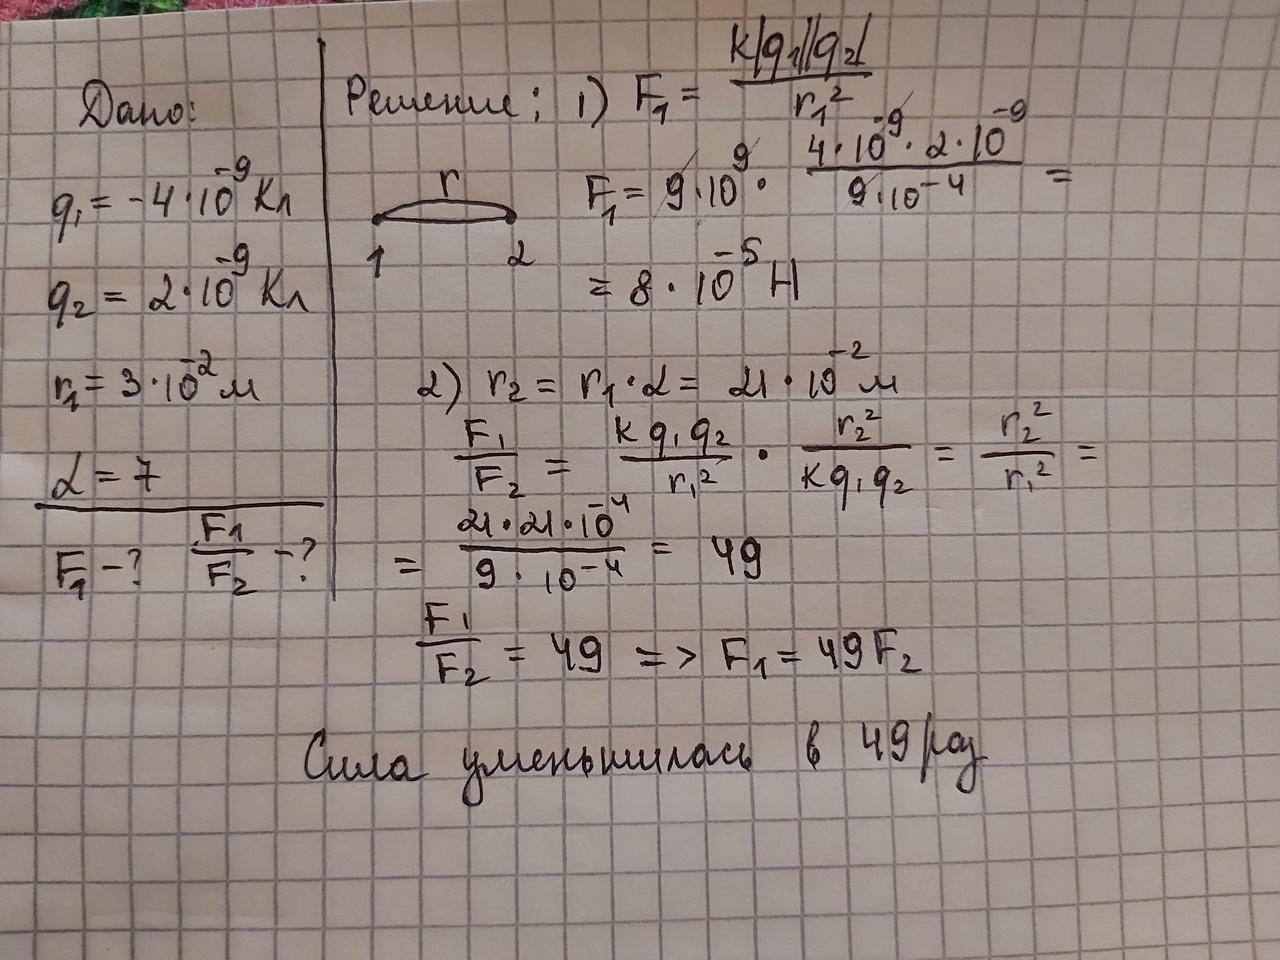 Дано:
q₁ = -4·10⁻⁹ Кл
q₂ = 2·10⁻⁹ Кл
r₁ = 3·10⁻² м
α = 7
F₁ - ? F₁/F₂ - ?
Решение: 1) F₁ = k|q₁||q₂| / r₁²
r
1 2
F₁ = 9·10⁹ · 4·10⁻⁹·2·10⁻⁹ / 9·10⁻⁴ =
= 8·10⁻⁵ Н
2) r₂ = r₁·α = 21·10⁻² м
F₁/F₂ = kq₁q₂/r₁² · r₂²/kq₁q₂ = r₂²/r₁² =
= 21·21·10⁻⁴ / 9·10⁻⁴ = 49
F₁/F₂ = 49 => F₁ = 49F₂
Сила уменьшилась в 49 раз